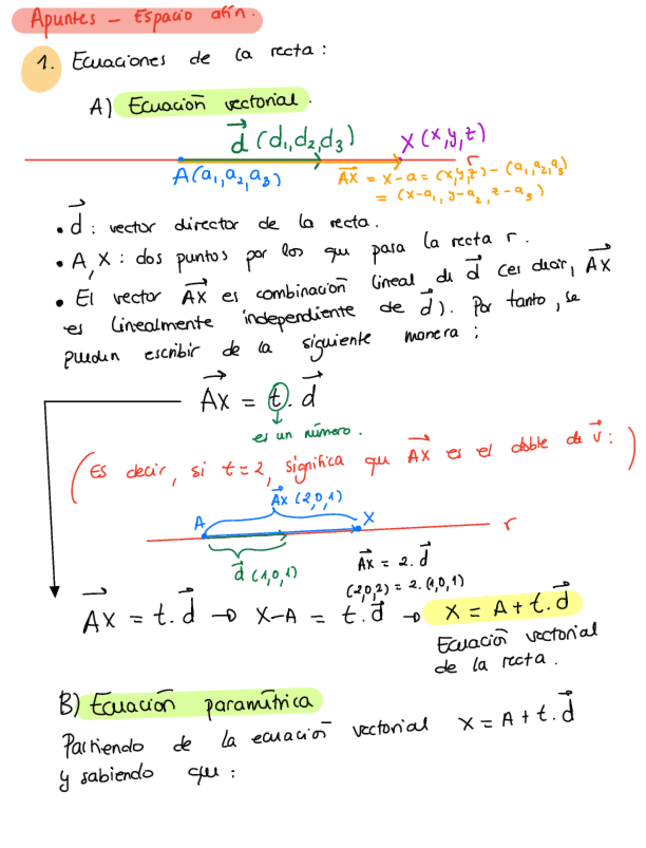 Apuntes - Espacio afín.
1. Ecuaciones de la recta:
A) Ecuación vectorial.
d⃗ (d₁,d₂,d₃)
X (x,y,z)
r
A(a₁,a₂,a₃)
AX⃗ = x-a = (x,y,z) - (a₁,a₂,a₃)
= (x-a₁, y-a₂, z-a₃)
• d⃗: vector director de la recta.
• A, X: dos puntos por los que pasa la recta r.
• El vector AX⃗ es combinación lineal de d⃗ (es decir, AX⃗
es linealmente independiente de d⃗). Por tanto, se
pueden escribir de la siguiente manera:
AX⃗ = t.d⃗
es un número.
(Es decir, si t=2, significa que AX⃗ es el doble de v⃗:)
AX⃗ (2,0,1)
A
X
r
d⃗ (1,0,1)
AX⃗ = 2.d⃗
(2,0,2) = 2.(1,0,1)
AX⃗ = t.d⃗ → X-A = t.d⃗ → X = A + t.d⃗
Ecuación vectorial
de la recta.
B) Ecuación paramétrica
Partiendo de la ecuación vectorial X = A + t.d⃗
y sabiendo que: